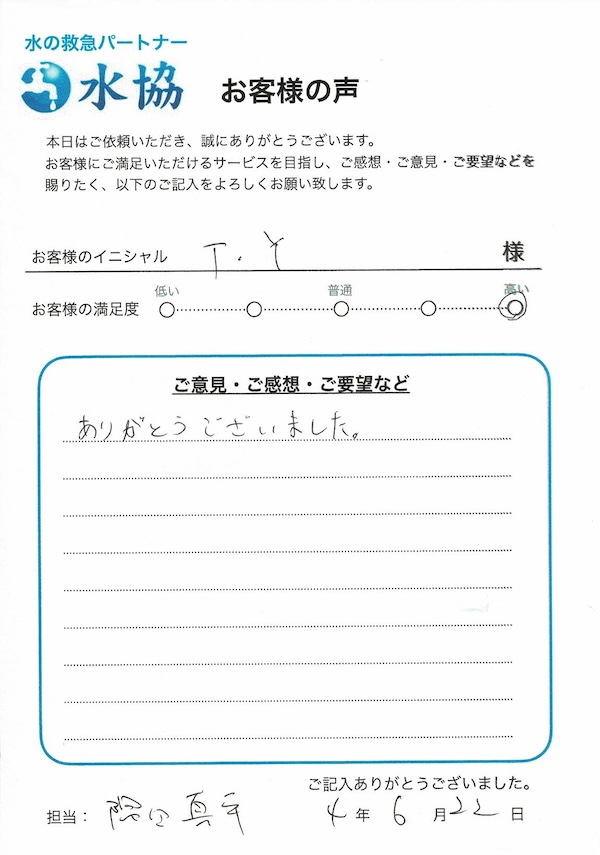 水の救急パートナー
水協 お客様の声
本日はご依頼いただき、誠にありがとうございます。
お客様にご満足いただけるサービスを目指し、ご感想・ご意見・ご要望などを
賜りたく、以下のご記入をよろしくお願い致します。
お客様のイニシャル T.Y 様
低い 普通 高い
お客様の満足度
ご意見・ご感想・ご要望など
ありがとうございました。
ご記入ありがとうございました。
担当： 4年 6月22日